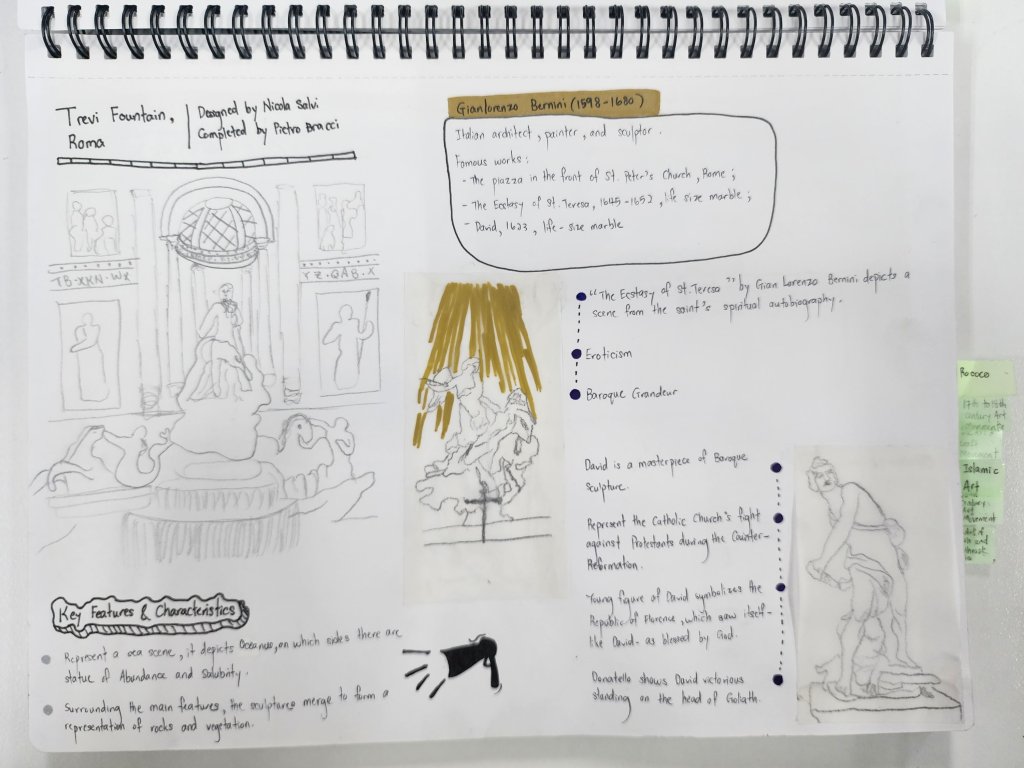 Trevi Fountain,
Roma
Designed by Nicola Salvi
Completed by Pietro Bracci
TB·XKN·WX
YZ·QAB·X
Key Features & Characteristics
Represent a sea scene, it depicts Oceanus, on which sides there are
statue of Abundance and Salubrity.
Surrounding the main features, the sculptures merge to form a
representation of rocks and vegetation.
Gianlorenzo Bernini (1598-1680)
Italian architect, painter, and sculptor.
Famous works:
- The piazza in the front of St. Peter's Church, Rome;
- The Ecstasy of St. Teresa, 1645-1652, life size marble;
- David, 1623, life-size marble
"The Ecstasy of St. Teresa" by Gian Lorenzo Bernini depicts a
scene from the saint's spiritual autobiography.
Eroticism
Baroque Grandeur
David is a masterpiece of Baroque
Sculpture.
Represent the Catholic Church's fight
against Protestants during the Counter-
Reformation.
Young figure of David symbolizes the
Republic of Florence, which saw itself-
like David- as blessed by God.
Donatello shows David victorious
standing on the head of Goliath.
Rococo
17th to 18th
Century Art
Movement
Islamic
Art
Art
Movement
Art of
and